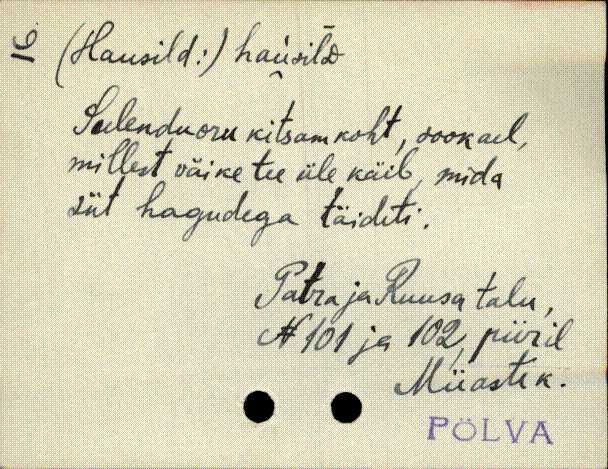 16
(Hausild:) hau̯silᴅ
Sulenduoru kitsam koht, sookael,
millest väike tee üle käib, mida
siit hagudega täideti.
Patra ja Ruusa talu,
N 101 ja 102, piiril
Miiaste k.
PÕLVA